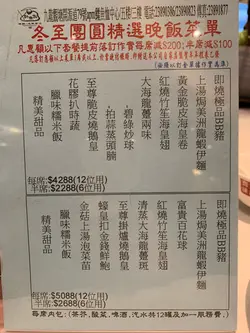 九龍觀塘開源道79號
五樓
電話
冬至團圓精選晚飯菜單
凡惠顧以下套餐提前落訂作實每席減$200;半席減$100
即燒極品BB豬
上湯焗美洲龍蝦伊麵
黃金脆皮海皇卷
紅燒竹笙海皇翅
大海龍躉兩味
-碧綠炒球
-拍蒜蒸頭腩
至尊脆皮燒鵝皇
花膠扒時蔬
臘味糯米飯
精美甜品
每席:$4288(12位用)
半席:$2288(6位用)
即燒極品BB豬
上湯焗美洲龍蝦伊麵
富貴百花球
紅燒竹笙海皇翅
清蒸大海龍躉斑
至尊掛爐燒鵝皇
蠔皇扣金錢鮮鮑
金菇上湯泡菜苗
臘味糯米飯
精美甜品
每席:$5088(12位用)
半席:$2688(6位用)
每席內包:(茶芥,酸菜,啤酒,汽水共12罐及加一服務費)